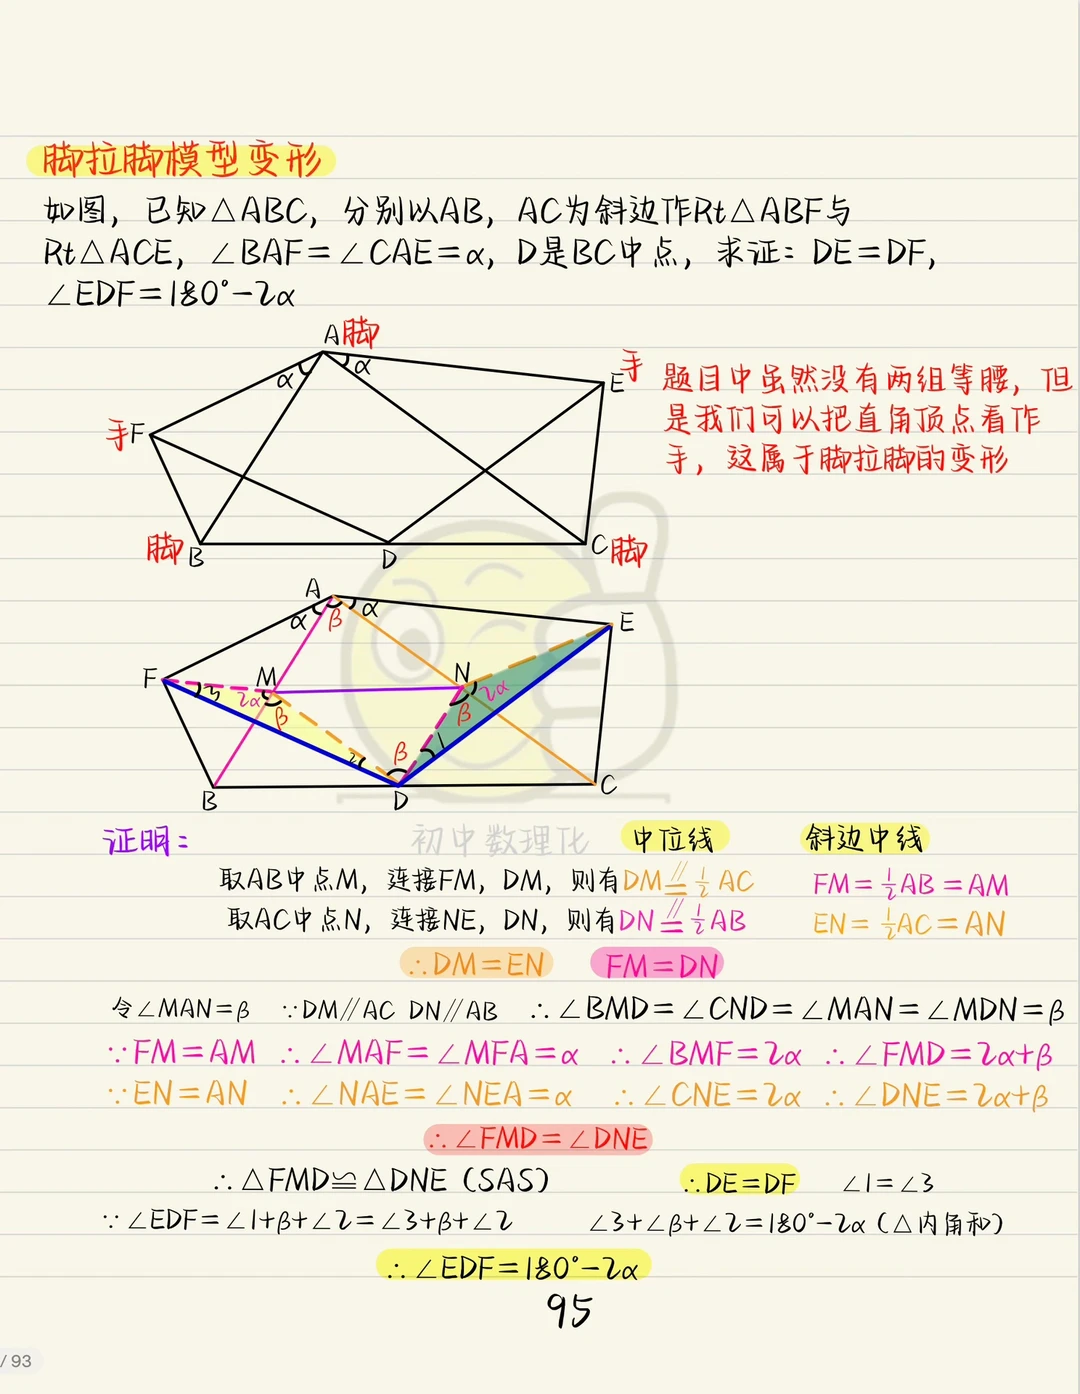 脚拉脚模型变形
如图，已知△ABC，分别以AB，AC为斜边作Rt△ABF与
Rt△ACE，∠BAF=∠CAE=α，D是BC中点，求证：DE=DF，
∠EDF=180°-2α
A脚
α
α
E手
手F
脚B
D
C脚
题目中虽然没有两组等腰，但
是我们可以把直角顶点看作
手，这属于脚拉脚的变形
A
α
β
α
E
F
3
M
2α
β
N
2α
β
β
1
2
B
D
C
初中数理化
证明：
中位线
斜边中线
取AB中点M，连接FM，DM，则有DM∥=½AC
FM=½AB=AM
取AC中点N，连接NE，DN，则有DN∥=½AB
EN=½AC=AN
∴DM=EN FM=DN
令∠MAN=β ∵DM∥AC DN∥AB ∴∠BMD=∠CND=∠MAN=∠MDN=β
∵FM=AM ∴∠MAF=∠MFA=α ∴∠BMF=2α ∴∠FMD=2α+β
∵EN=AN ∴∠NAE=∠NEA=α ∴∠CNE=2α ∴∠DNE=2α+β
∴∠FMD=∠DNE
∴△FMD≌△DNE（SAS） ∴DE=DF ∠1=∠3
∵∠EDF=∠1+β+∠2=∠3+β+∠2 ∠3+∠β+∠2=180°-2α（△内角和）
∴∠EDF=180°-2α
95
/ 93